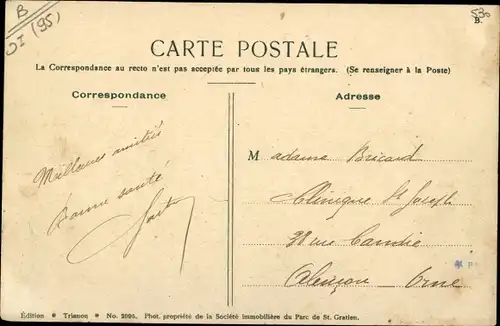 B
DI (95)
530
B.
CARTE POSTALE
La Correspondance au recto n'est pas acceptée par tous les pays étrangers. (Se renseigner à la Poste)
Correspondance
Adresse
Meilleures amitiés
Bonne santé
Madame Bricard
Clinique St Joseph
38 rue Candie
Alençon Orne
Édition * Trianon * No. 2090. Phot. propriété de la Société Immobilière du Parc de St. Gratien.